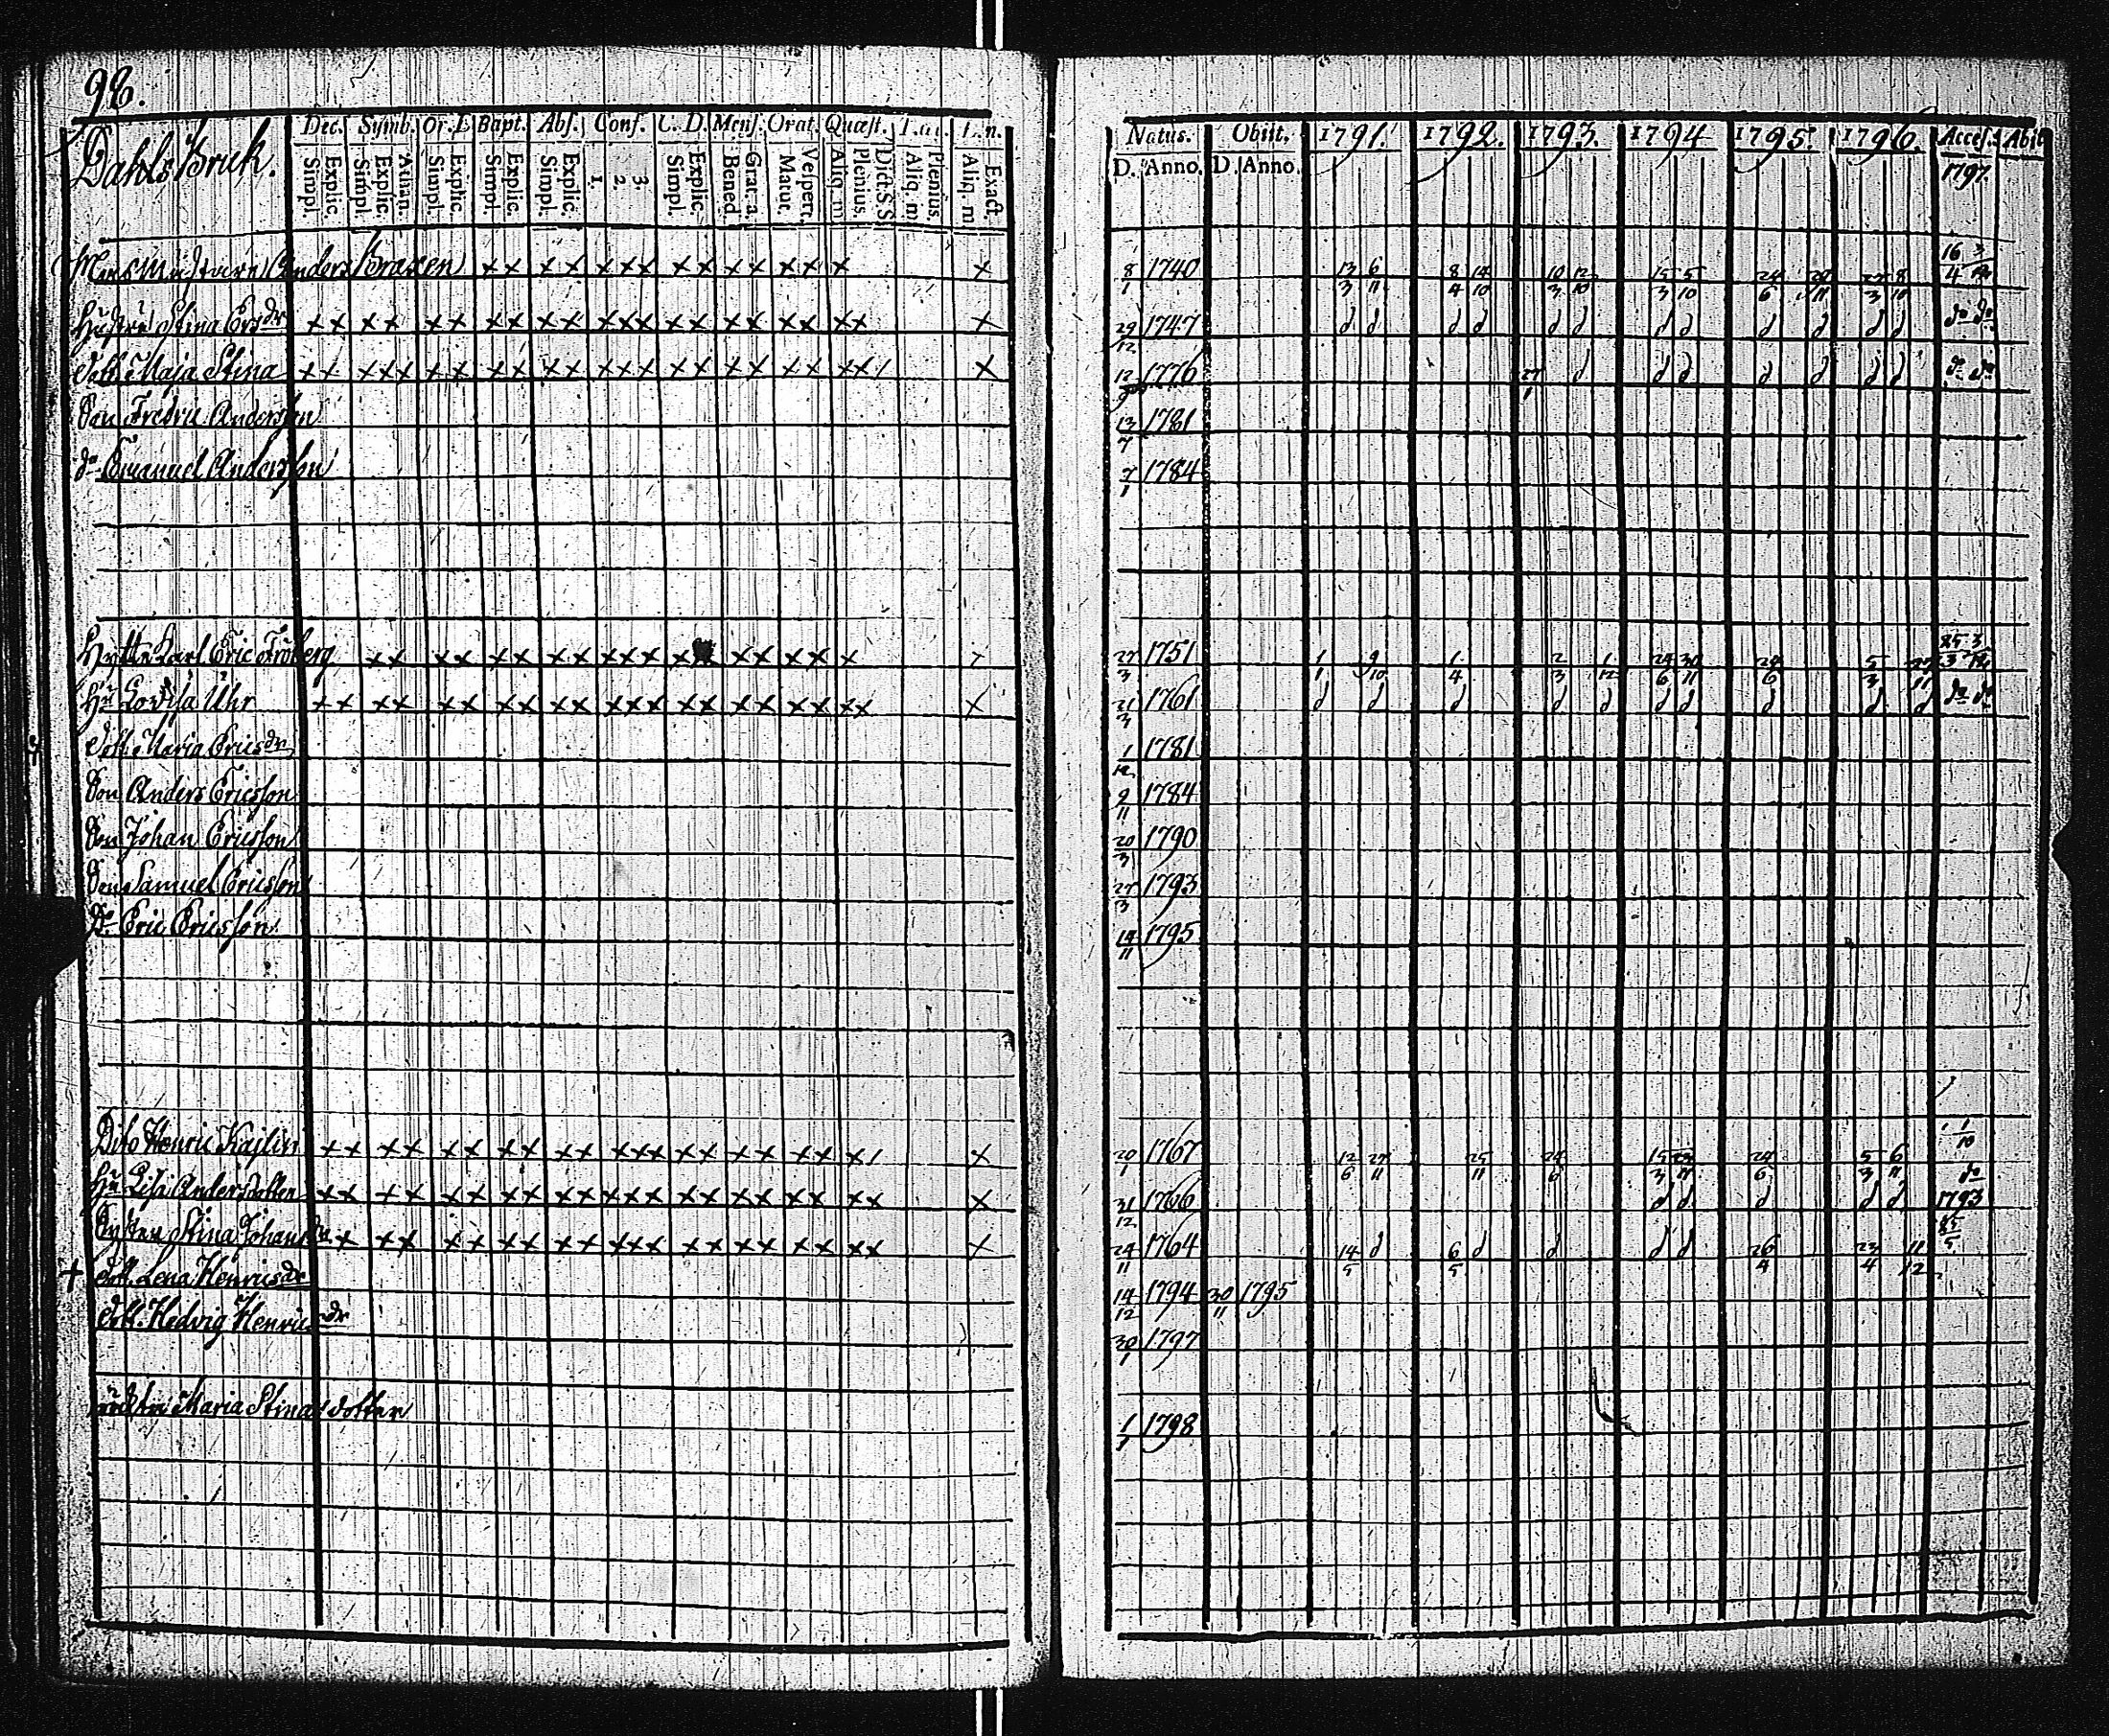 98.
Dahls Bruk.
Dec. Symb. Or. D Bapt. Abs. Conf. C. D. Mens. Orat. Quæst.
Simpl. Explic. Simpl. Explic. Athan. Simpl. Explic. Simpl. Explic. Simpl. Explic. 1. 2. 3. Simpl. Explic. Bened. Grat. a. Matut. Vesperr. Aliq. m Plenius. Dict. S. S Aliq. m Plenius. Aliq. m Exact.
Natus. Obiit. 1791. 1792. 1793. 1794 1795. 1796. Access. Abit
D. Anno. D. Anno. 1797.
Anders Braxen x x x x x x x x x x x x x x x
8/1 1740 13/3 6/11 8/4 14/10 10/3 12/10 15/3 5/10 24/6 8/10 16/4
Hustru Stina Ersdr x x x x x x x x x x x x x x x x x x x x x x
29/12 1747 d d d d d d d d d d d d do do
Dott. Maja Stina x x x x x x x x x x x x x x x x x x x x x x
12 1776 27/1 d d d d d d d do do
Son Fredric Andersson
13/7 1781
do Emanuel Andersson
7/1 1784
Carl Eric x x x x x x x x x x x x x x x x x x
27/3 1751 1/1 9/10 1/4 2/3 1/12 24/6 30/11 24/6 5/3 27/11 25/3
Hu Lovisa Uhr x x x x x x x x x x x x x x x x x x x x x x
21/3 1761 d d d d d d d d d d do do
Dott. Maria Ericsdr
1/12 1781
Son Anders Ericsson
9/11 1784
Son Johan Ericsson
20/3 1790
Son Samuel Ericsson
27/3 1793
Do Eric Ericsson
14/11 1795
Dito Henric Kajlin x x x x x x x x x x x x x x x x x x x x x
20/1 1767 12/6 27/11 25/11 24/6 15/3 24/6 5/3 6/11 1/10
Hu Lisa Andersdotter x x x x x x x x x x x x x x x x x x x x x x
31/12 1766 d d d d d do 1793
Syster Stina Johansdr x x x x x x x x x x x x x x x x x x x x x
24/11 1764 14/5 d 6/5 d d d d 26/4 23/4 11/12
+ Dott. Lena Henricsdr
14/12 1794 30/11 1795
Dott. Hedvig Henricsdr
30/1 1797
Maria Stina dotter
1798